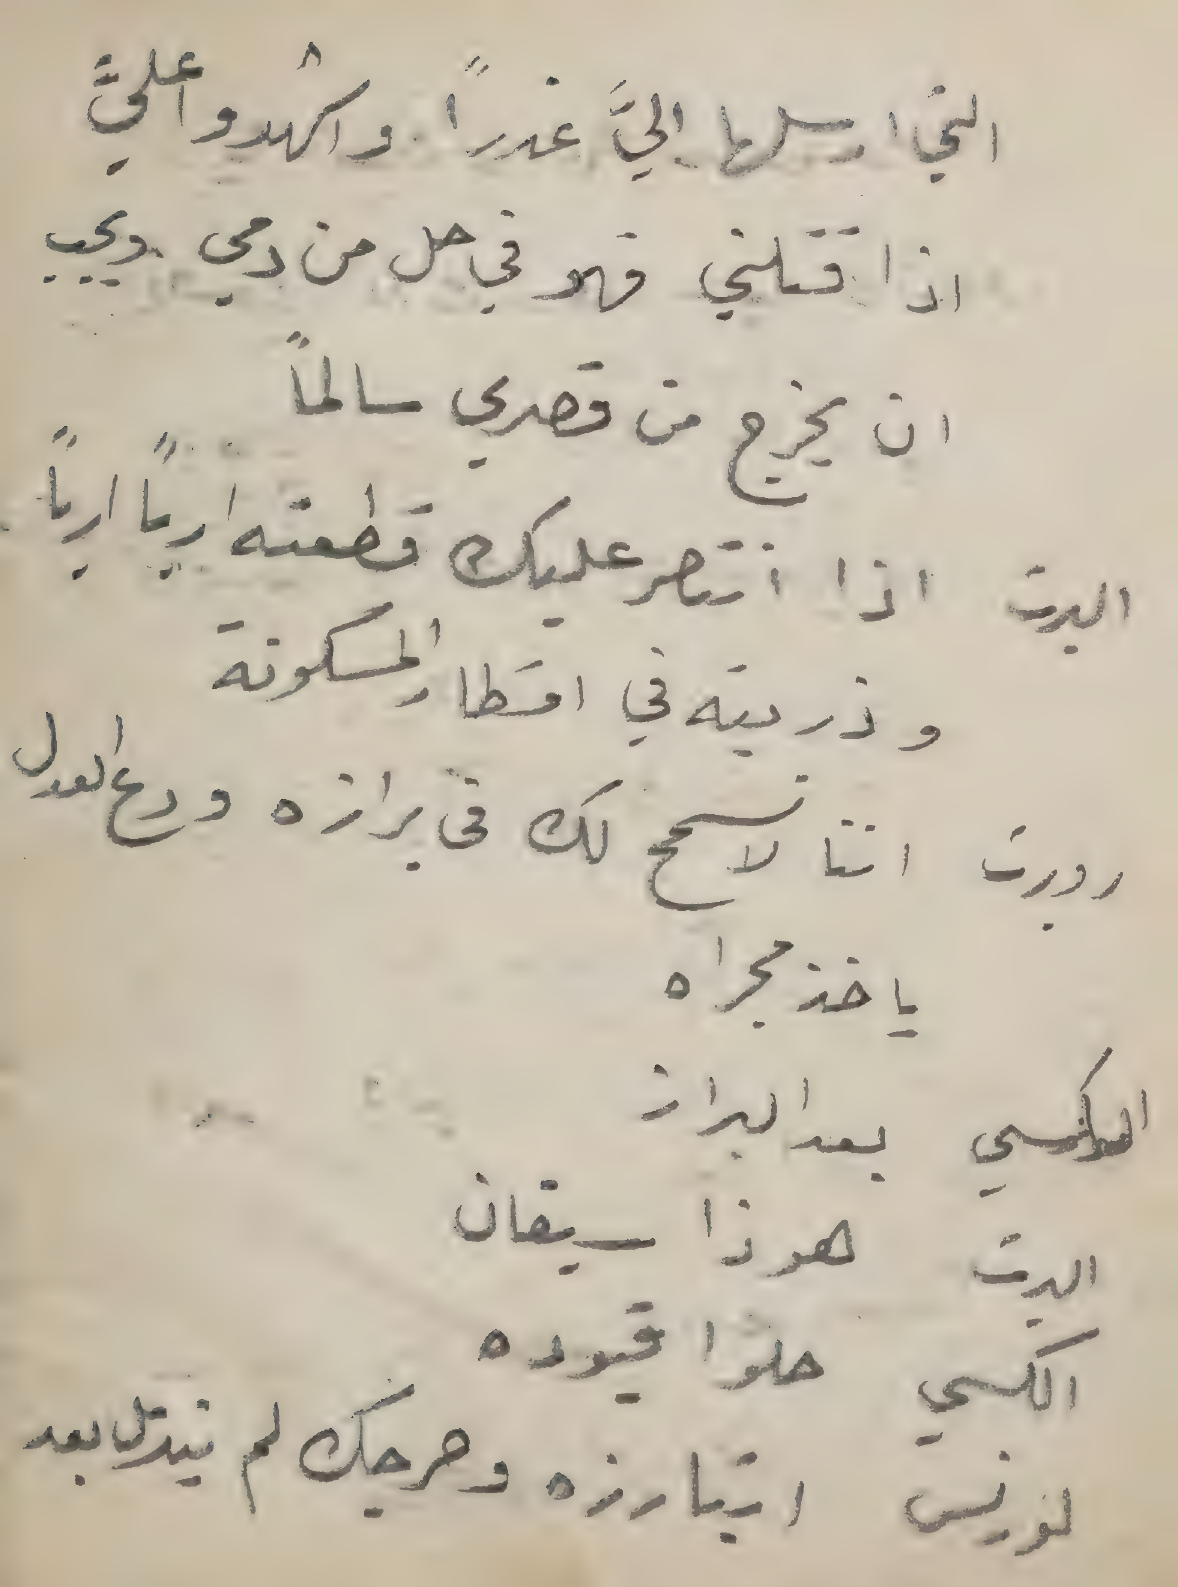 التي ارسلها اليَّ غدراً. واشهدوا عليَّ
اذا قتلني فهو في حل من دمي ويجب
ان يخرج من قصري سالماً
البرت اذا انتصر عليك قطعته ارباً ارباً
وذريته في اقطار المسكونة
روبرت اننا لا نسمح لك في برازه ودع العدل
ياخذ مجراه
الكسي بعد البراز
البرت هوذا سيفان
الكسي حلوا قيوده
لورنس اتبارزه وجرحك لم يندمل بعد